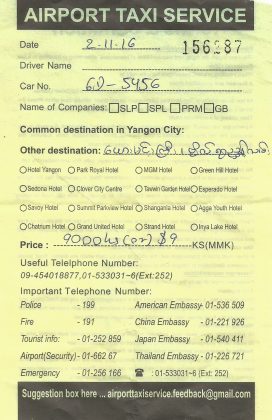 AIRPORT TAXI SERVICE
Date 2.11.16 156287
Driver Name
Car No. 6D-5456
Name of Companies: SLP SPL PRM GB
Common destination in Yangon City:
Other destination:
Hotel Yangon Park Royal Hotel MGM Hotel Green Hill Hotel
Sedona Hotel Clover City Centre Tawwin Garden Hotel Esperado Hotel
Savoy Hotel Summit Parkview Hotel Shangrila Hotel Agga Youth Hotel
Chatrium Hotel Grand United Hotel Strand Hotel Inya Lake Hotel
Price : 9000 (or) $9 KS(MMK)
Useful Telephone Number:
09-454018877, 01-533031~6(Ext:252)
Important Telephone Number:
Police - 199 American Embassy - 01-536 509
Fire - 191 China Embassy - 01-221 926
Tourist info: - 01-252 859 Japan Embassy - 01-540 411
Airport(Security) - 01-662 67 Thailand Embassy - 01-226 721
Emergency - 01-256 166 ☎ : 01-533031~6 (Ext: 252)
Suggestion box here ... airporttaxiservice.feedback@gmail.com